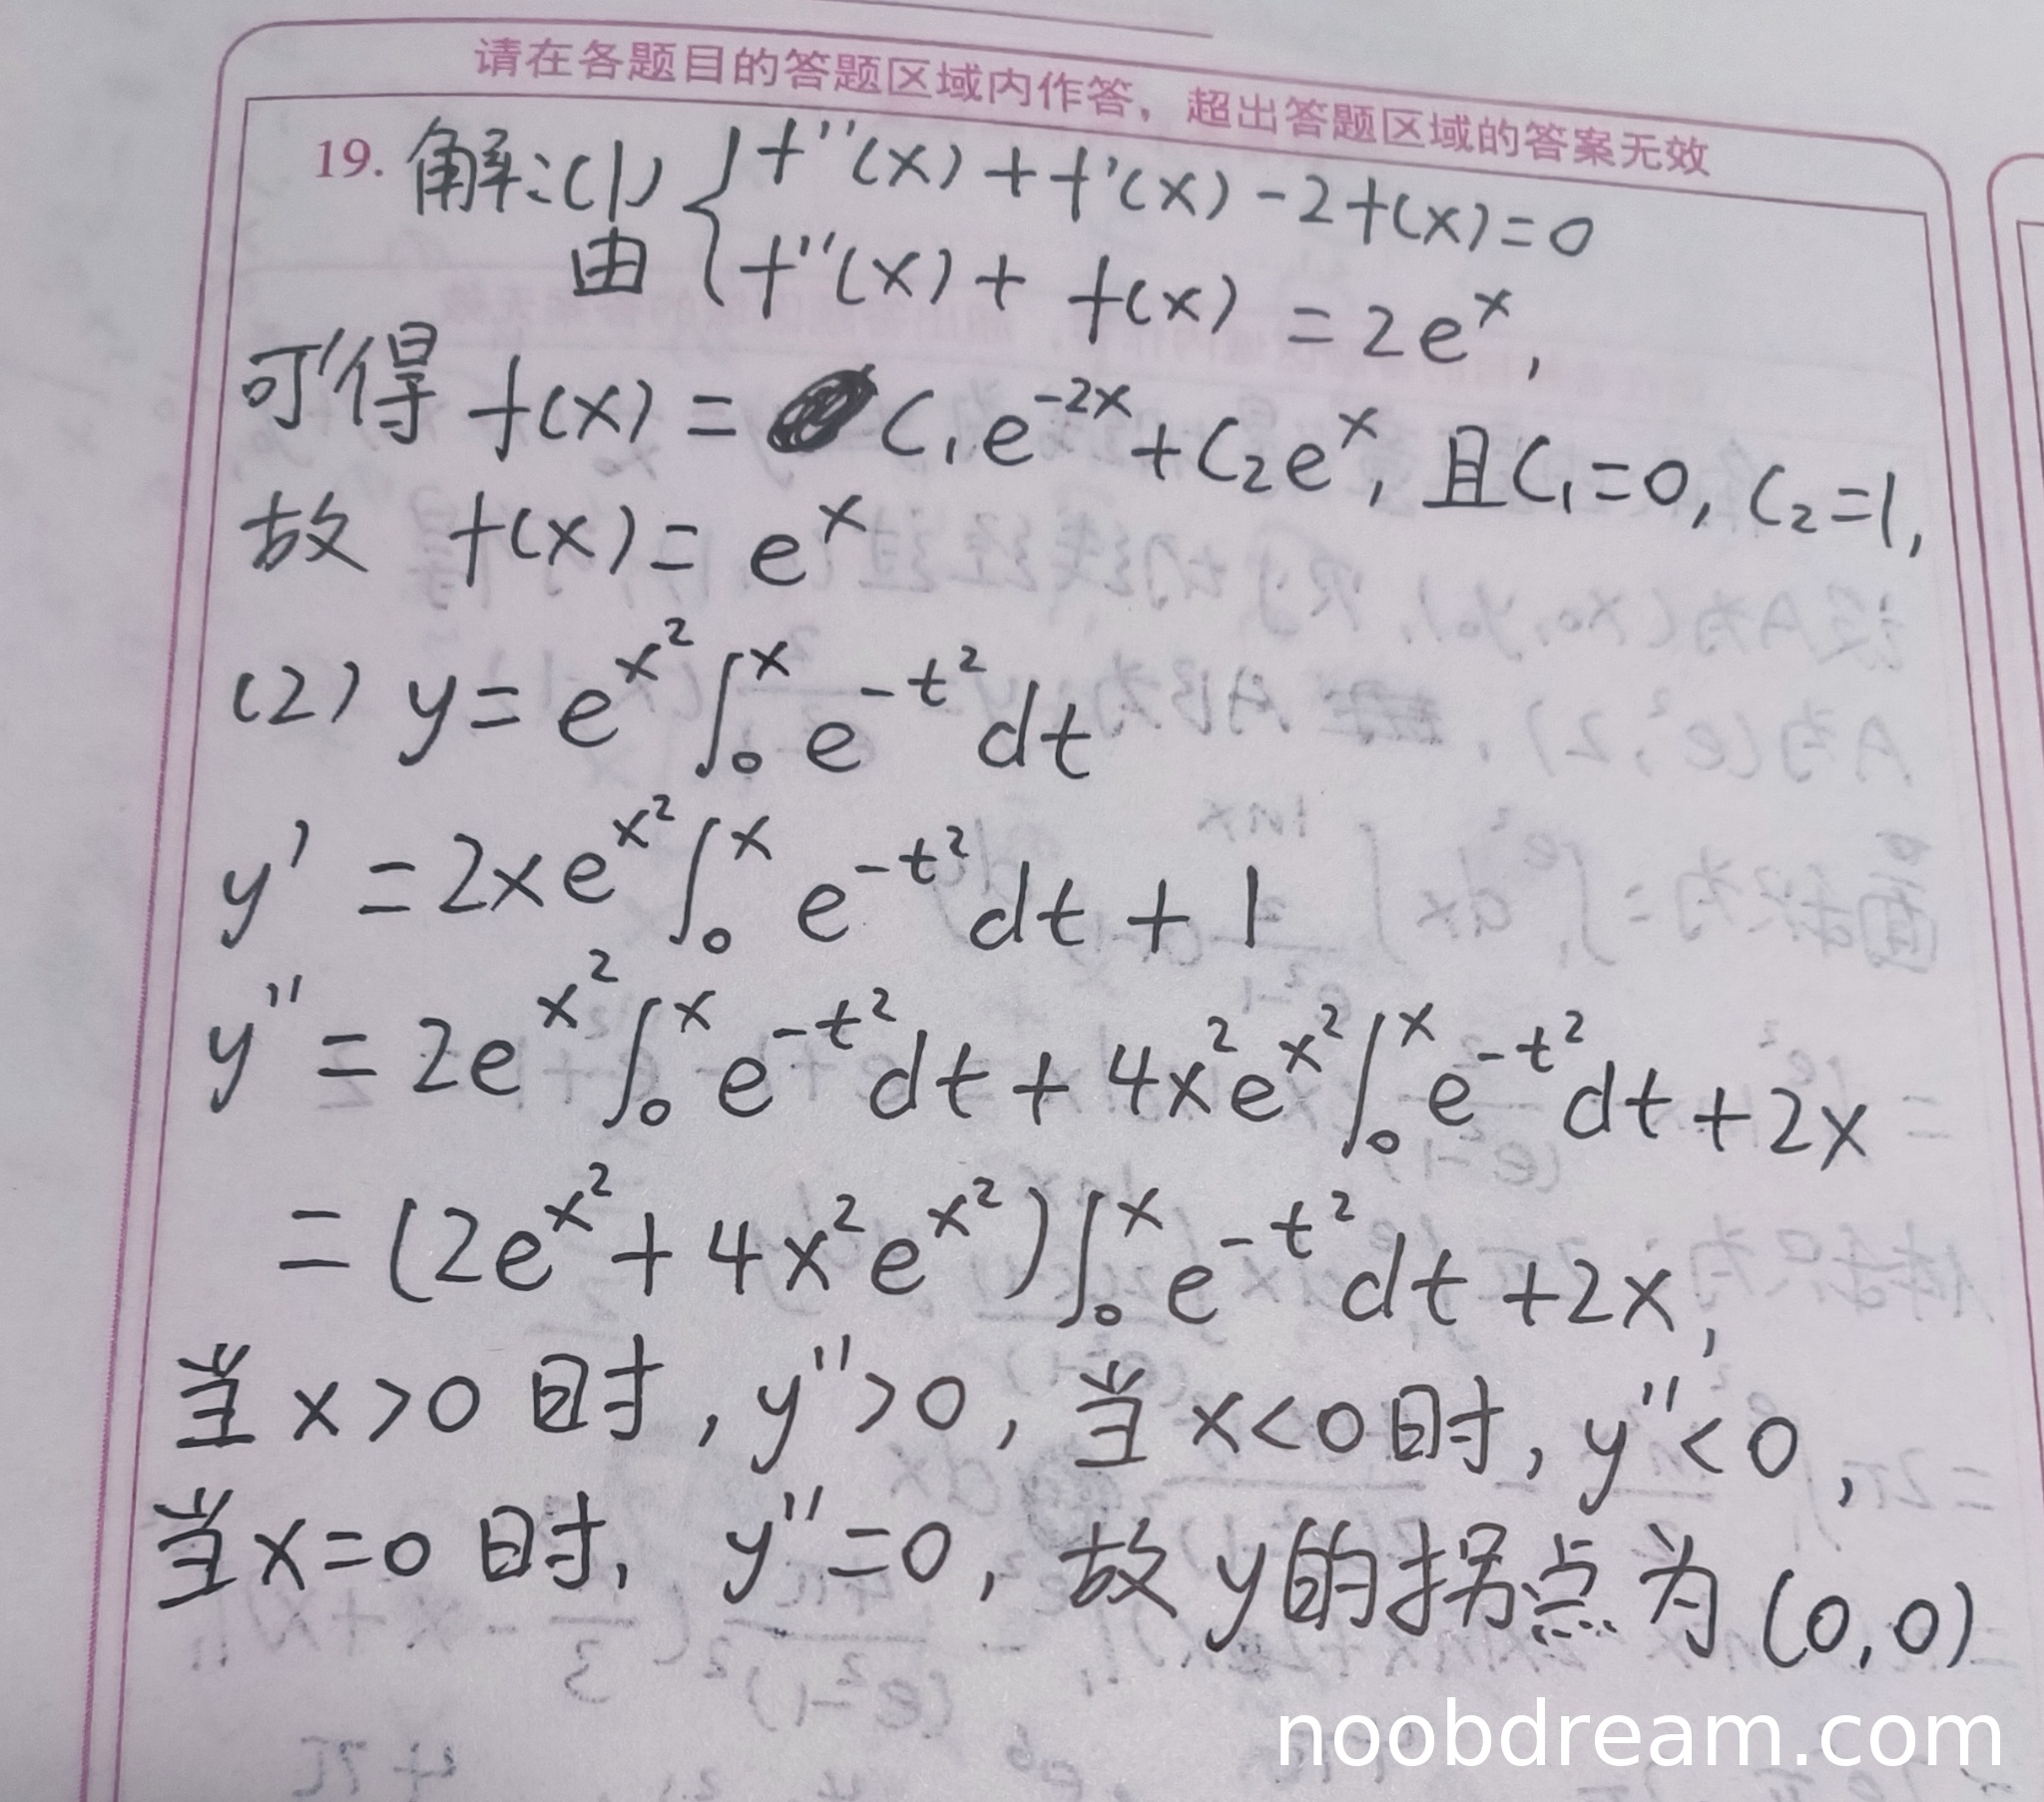 请在各题目的答题区域内作答，超出答题区域的答案无效
19. 解:(1) { f''(x) + f'(x) - 2f(x) = 0
由 { f''(x) + f(x) = 2e^x,
可得 f(x) = C₁e^{-2x} + C₂e^x, 且C₁=0, C₂=1,
故 f(x) = e^x
(2) y = e^{x²} ∫₀^x e^{-t²} dt
y' = 2xe^{x²} ∫₀^x e^{-t²} dt + 1
y'' = 2e^{x²} ∫₀^x e^{-t²} dt + 4x²e^{x²} ∫₀^x e^{-t²} dt + 2x
= (2e^{x²} + 4x²e^{x²}) ∫₀^x e^{-t²} dt + 2x,
当 x>0 时, y''>0, 当 x<0 时, y''<0,
当 x=0 时, y''=0, 故 y 的拐点为 (0,0)
noobdream.com